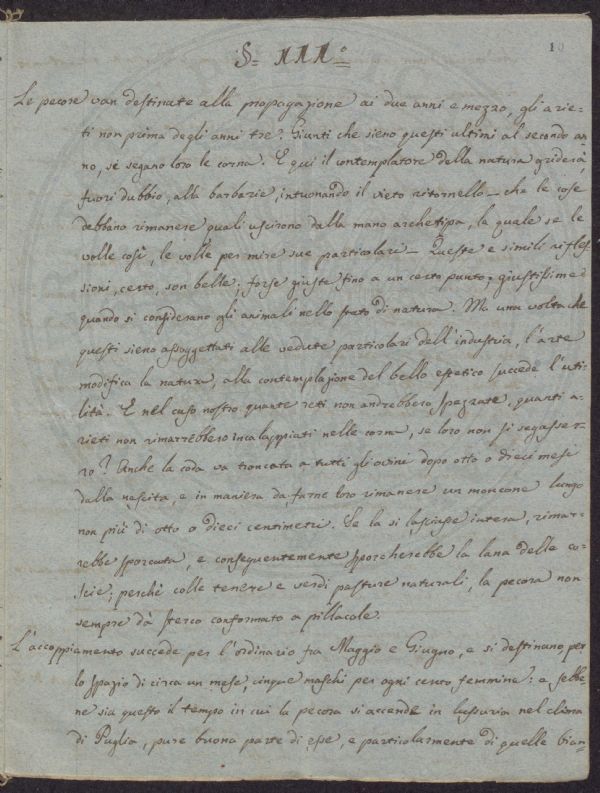 10
§= III°=
Le pecore van destinate alla propagazione ai due anni e mezzo, gli arie-
ti non prima degli anni tre. Giunti che sieno questi ultimi al secondo an-
no, se segano loro le corna. E qui il contemplatore della natura griderà,
fuori dubbio, alla barbarie, intuonando il vieto ritornello — che le cose
debbano rimanere quali uscirono dalla mano archetipa, la quale se le
volle così, le volle per mire sue particolari — Queste e simili rifles-
sioni, certo, son belle; forse giuste fino a un certo punto; giustissime
quando si considerano gli animali nello stato di natura. Ma una volta che
questi sieno assoggettati alle vedute particolari dell'industria, l'arte
modifica la natura, alla contemplazione del bello estetico succede l'uti-
lità. E nel caso nostro quante reti non andrebbero spezzate, quanti a-
rieti non rimarrebbero incalappiati nelle corna, se loro non si segasse-
ro? Anche la coda va troncata a tutti gli ovini dopo otto o dieci mesi
dalla nascita, e in maniera da farne loro rimanere un moncone lungo
non più di otto o dieci centimetri. Se la si lasciasse intera, rimar-
rebbe sporcata, e conseguentemente sporcherebbe la lana delle co-
scie; perchè colle tenere e verdi pasture naturali, la pecora non
sempre dà sterco conformato a pillacole.
L'accoppiamento succede per l'ordinario fra Maggio e Giugno, e si destinano per
lo spazio di circa un mese, cinque maschi per ogni cento femmine: e sebbe-
ne sia questo il tempo in cui la pecora si accende in lussuria nel clima
di Puglia, pure buona parte di esse, e particolarmente di quelle bian-